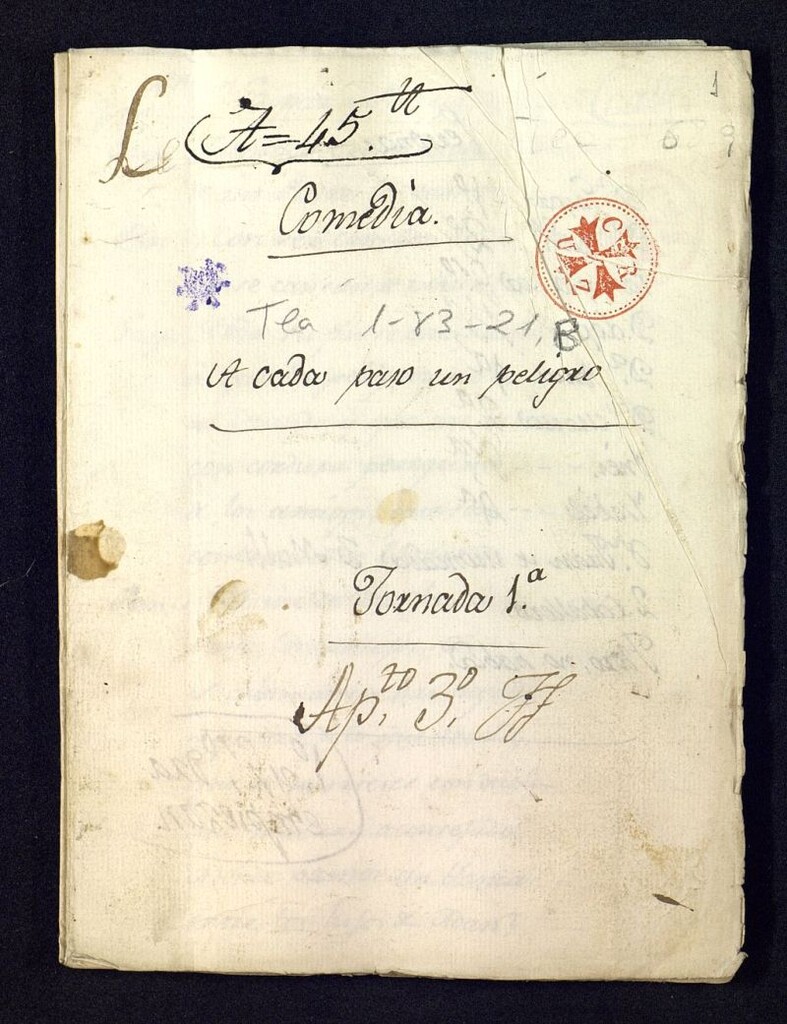 1
Le A=45.
Comedia.
Tea 1-83-21, B
A cada paso un peligro
Jornada 1.ª
Ap.to 3.º